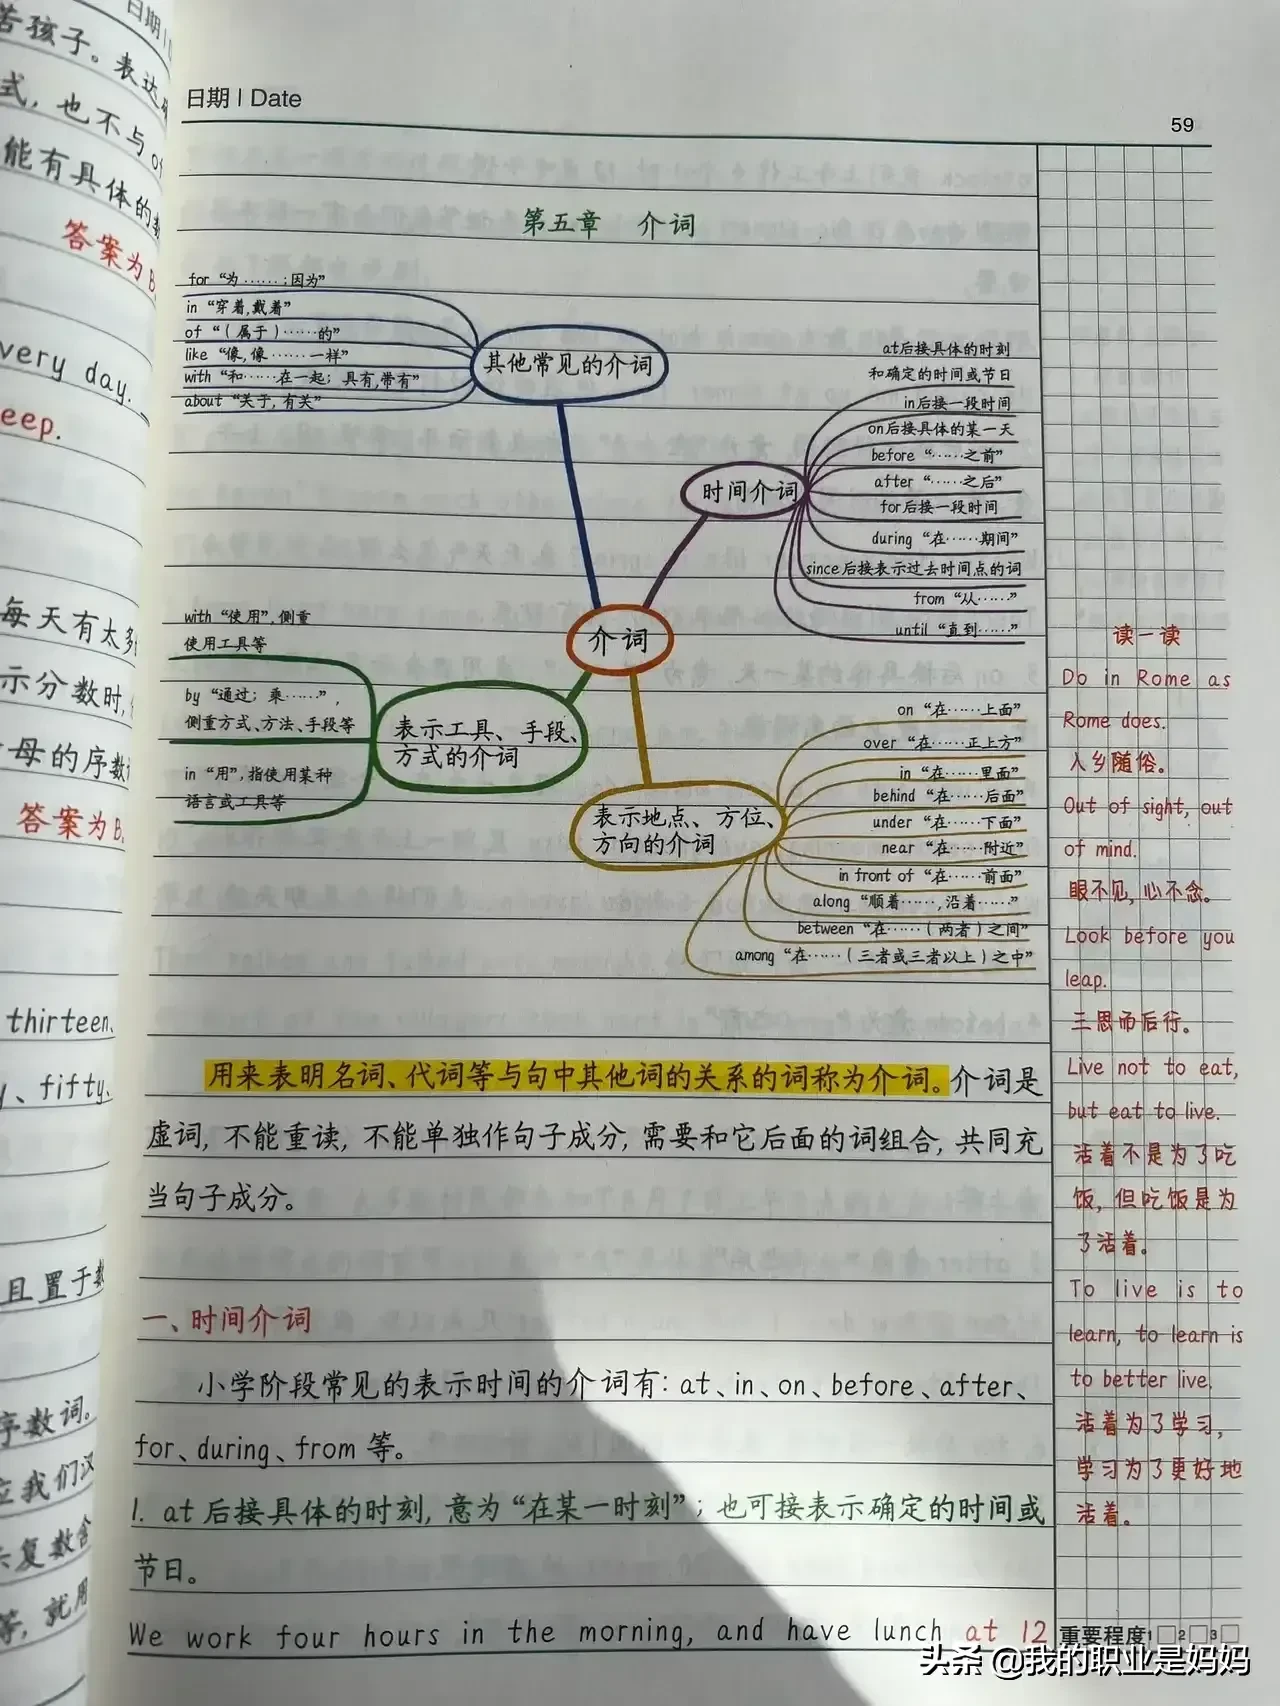 日期
苦孩子。表达
式，也不与of
能有具体的数
答案为B.
very day.
eep.
每天有太多
示分数时，
母的序数词
答案为B.
thirteen、
y、fifty、
且置于数
序数词。
立我们汉
复数含
等，就用
日期 | Date
59
第五章 介词
for “为……；因为”
in “穿着,戴着”
of “（属于）……的”
like “像,像……一样”
with “和……在一起；具有,带有”
about “关于,有关”
其他常见的介词
at后接具体的时刻
和确定的时间或节日
in后接一段时间
on后接具体的某一天
before “……之前”
after “……之后”
for后接一段时间
during “在……期间”
since后接表示过去时间点的词
from “从……”
until “直到……”
时间介词
介词
with “使用”,侧重
使用工具等
by “通过；乘……”,
侧重方式、方法、手段等
in “用”,指使用某种
语言或工具等
表示工具、手段、
方式的介词
on “在……上面”
over “在……正上方”
in “在……里面”
behind “在……后面”
under “在……下面”
near “在……附近”
in front of “在……前面”
along “顺着……,沿着……”
between “在……（两者）之间”
among “在……（三者或三者以上）之中”
表示地点、方位、
方向的介词
用来表明名词、代词等与句中其他词的关系的词称为介词。介词是
虚词，不能重读，不能单独作句子成分，需要和它后面的词组合，共同充
当句子成分。
一、时间介词
小学阶段常见的表示时间的介词有：at、in、on、before、after、
for、during、from 等。
1. at 后接具体的时刻，意为“在某一时刻”；也可接表示确定的时间或
节日。
We work four hours in the morning, and have lunch at 12
读一读
Do in Rome as
Rome does.
入乡随俗。
Out of sight, out
of mind.
眼不见，心不念。
Look before you
leap.
三思而后行。
Live not to eat,
but eat to live.
活着不是为了吃
饭，但吃饭是为
了活着。
To live is to
learn, to learn is
to better live.
活着为了学习，
学习为了更好地
活着。
重要程度1□2□3□
头条 @我的职业是妈妈